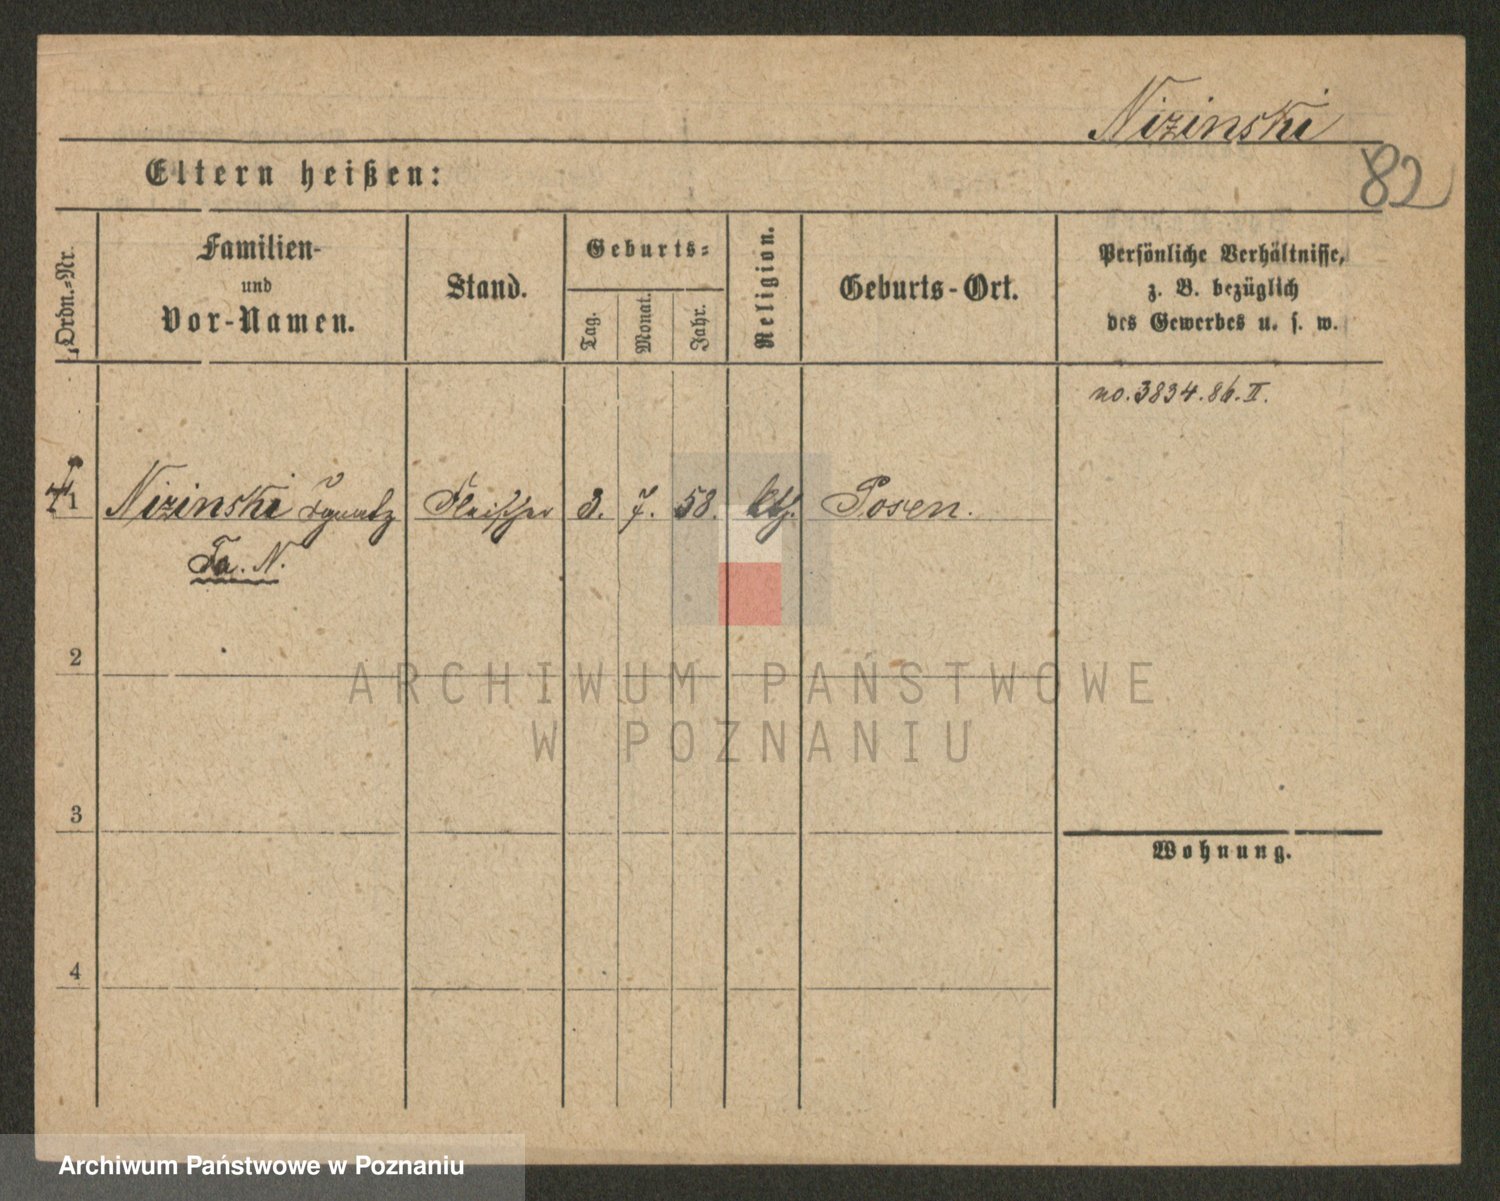 Nizinski
82
Eltern heißen:
Ordn.-Nr.
Familien-
und
Vor-Namen.
Stand.
Geburts-
Tag.
Monat.
Jahr.
Religion.
Geburts-Ort.
Persönliche Verhältnisse,
z. B. bezüglich
des Gewerbes u. s. w.
no. 3834. 86. II.
1 Nizinski Ignatz Fleischer 3. 7. 58. kth. Posen.
Fa. N.
2
3
Wohnung.
4
ARCHIWUM PAŃSTWOWE
W POZNANIU
Archiwum Państwowe w Poznaniu